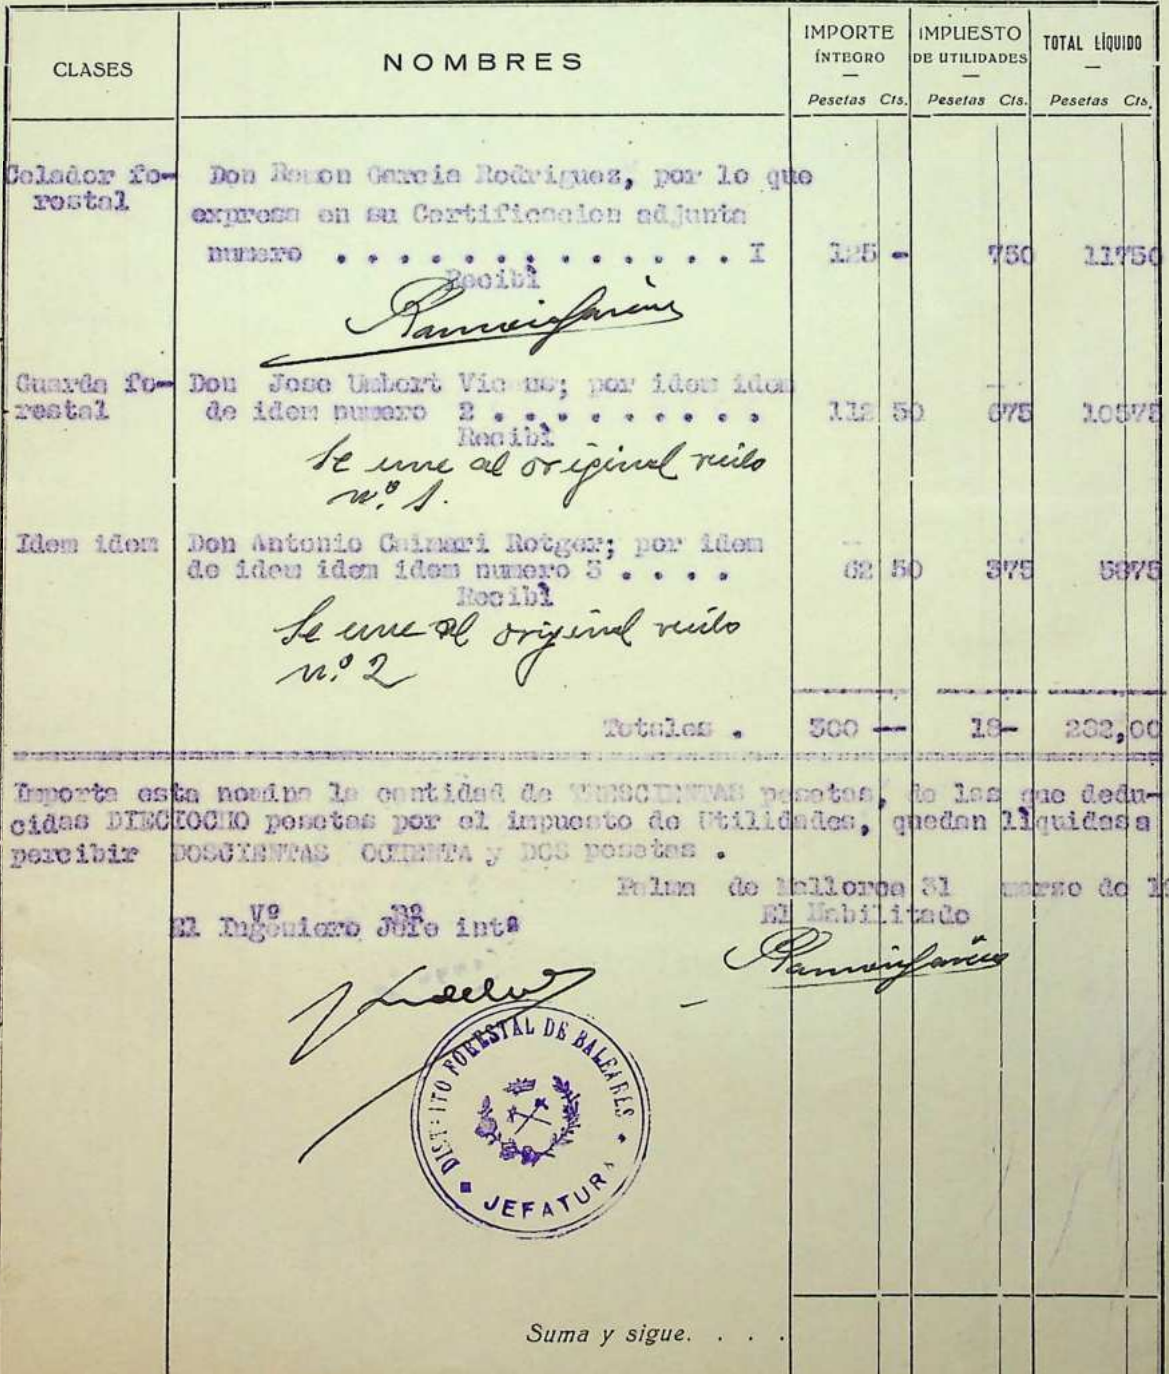 CLASES
NOMBRES
IMPORTE
ÍNTEGRO
Pesetas Cts.
IMPUESTO
DE UTILIDADES
Pesetas Cts.
TOTAL LÍQUIDO
Pesetas Cts.
Celador fo-
restal
Don Ramon Garcia Rodriguez, por lo que
expresa en su Certificacion adjunta
numero . . . . . . . . . . . . . . I 125 - 750 11750
Recibì
Ramon Garcia
Guarda fo-
restal
Don Jose Umbert Vicens; por idem idem
de idem numero 2 . . . . . . . . . 112 50 675 10575
Recibì
Se une al original recibo
nº. 1.
Idem idem
Don Antonio Caimari Rotger; por idem
de idem idem idem numero 3 . . . . 62 50 375 5875
Recibì
Se une al original recibo
n.º 2
Totales . 300 -- 18- 282,00
Importa esta nomina la cantidad de TRESCIENTAS pesetas, de las que dedu-
cidas DIECIOCHO pesetas por el impuesto de Utilidades, quedan lìquidas a
percibir DOSCIENTAS OCHENTA y DOS pesetas .
Palma de Mallorca 31 marzo de 19
Vº Bº
El Ingeniero Jefe intº
El Habilitado
Ramon Garcia
DISTRITO FORESTAL DE BALEARES
JEFATURA
Suma y sigue. . . .